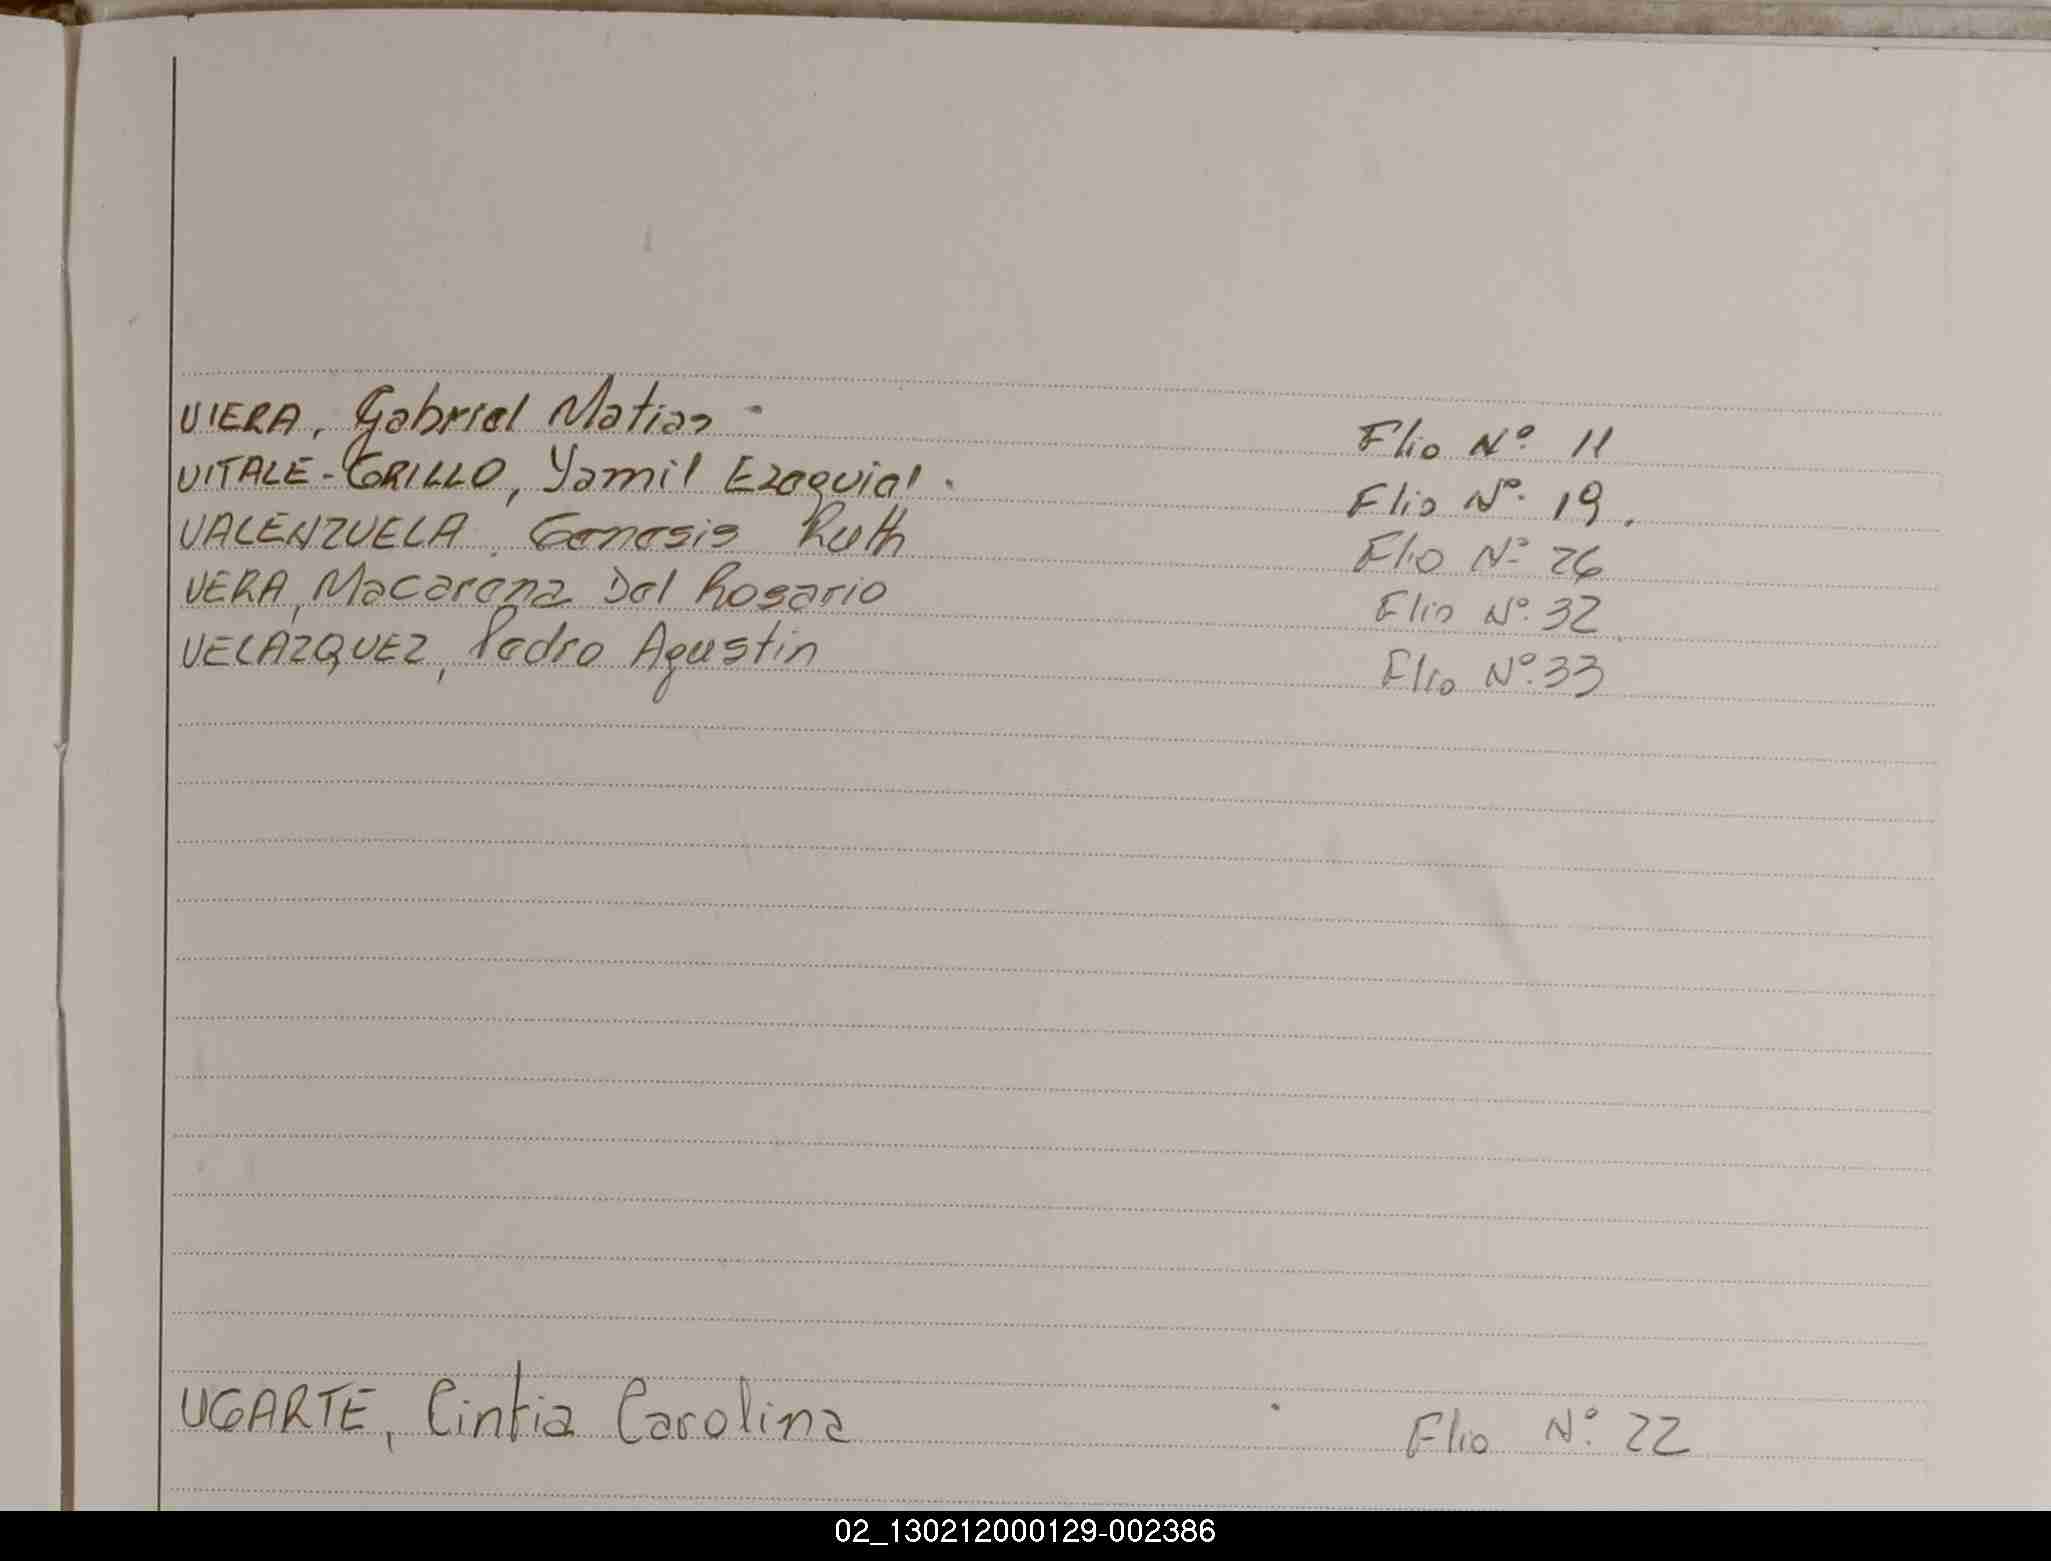 VIERA, Gabriel Matias. Flio Nº 11
VITALE-GRILLO, Yamil Ezequiel. Flio Nº 19.
VALENZUELA. Genesis Ruth Flio Nº 26
VERA, Macarena Del Rosario Flio Nº 32
VELÁZQUEZ, Pedro Agustin Flio Nº 33
UGARTE, Cintia Carolina Flio Nº 22
02_130212000129-002386